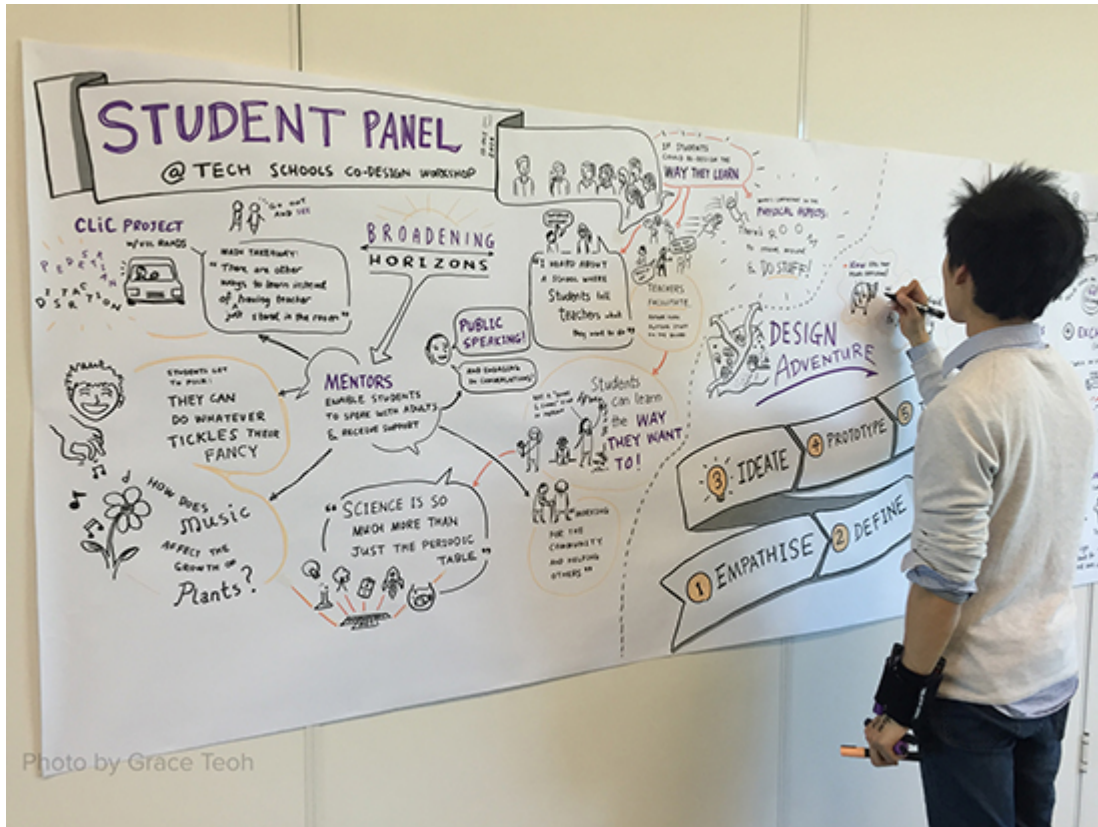 STUDENT PANEL
@ TECH SCHOOLS CO-DESIGN WORKSHOP
CLiC PROJECT
PEDESTRIAN
DISTRACTION
GO OUT
AND SEE
MAIN TAKEAWAY:
"There are other
ways to learn instead
of having teacher
just stand in the room"
BROADENING
HORIZONS
MENTORS
ENABLE STUDENTS
TO SPEAK WITH ADULTS
& RECEIVE SUPPORT
PUBLIC
SPEAKING!
AND ENGAGING
IN CONVERSATIONS!
STUDENTS GET
TO PICK!
THEY CAN
DO WHATEVER
TICKLES THEIR
FANCY
HOW DOES
Music
AFFECT THE
GROWTH OF
Plants?
"SCIENCE IS SO
MUCH MORE THAN
JUST THE PERIODIC
TABLE"
IF STUDENTS
COULD RE-DESIGN THE
WAY THEY LEARN
"I HEARD ABOUT
A SCHOOL WHERE
Students tell
teachers what
they want to do"
TEACHERS
FACILITATE
Students
can learn
the WAY
THEY WANT
TO!
WORKING
FOR THE
COMMUNITY
AND HELPING
OTHERS"
PHYSICAL ASPECTS:
There's ROOM
& DO STUFF!
DESIGN
ADVENTURE
1 EMPATHISE
2 DEFINE
3 IDEATE
4 PROTOTYPE
5
Photo by Grace Teoh